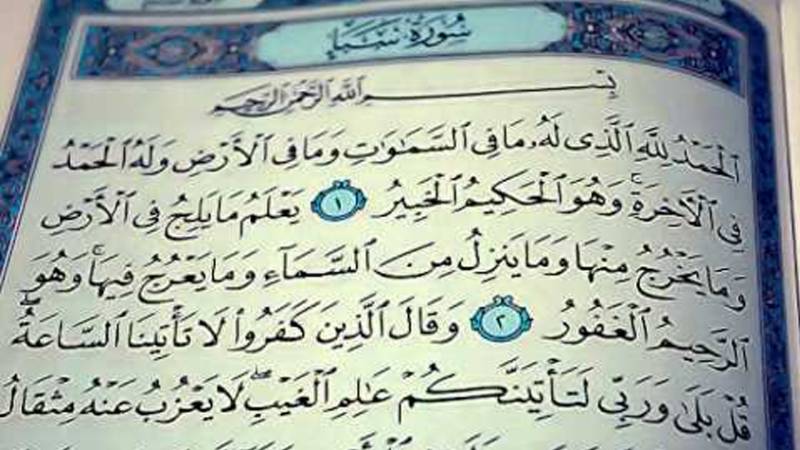 سُورَةُ سَبَإٍ
بِسْمِ ٱللَّهِ ٱلرَّحْمَٰنِ ٱلرَّحِيمِ
ٱلْحَمْدُ لِلَّهِ ٱلَّذِى لَهُۥ مَا فِى ٱلسَّمَٰوَٰتِ وَمَا فِى ٱلْأَرْضِ وَلَهُ ٱلْحَمْدُ
فِى ٱلْءَاخِرَةِ ۚ وَهُوَ ٱلْحَكِيمُ ٱلْخَبِيرُ ١ يَعْلَمُ مَا يَلِجُ فِى ٱلْأَرْضِ
وَمَا يَخْرُجُ مِنْهَا وَمَا يَنزِلُ مِنَ ٱلسَّمَآءِ وَمَا يَعْرُجُ فِيهَا ۚ وَهُوَ
ٱلرَّحِيمُ ٱلْغَفُورُ ٢ وَقَالَ ٱلَّذِينَ كَفَرُوا۟ لَا تَأْتِينَا ٱلسَّاعَةُ ۖ
قُلْ بَلَىٰ وَرَبِّى لَتَأْتِيَنَّكُمْ عَٰلِمِ ٱلْغَيْبِ ۖ لَا يَعْزُبُ عَنْهُ مِثْقَالُ